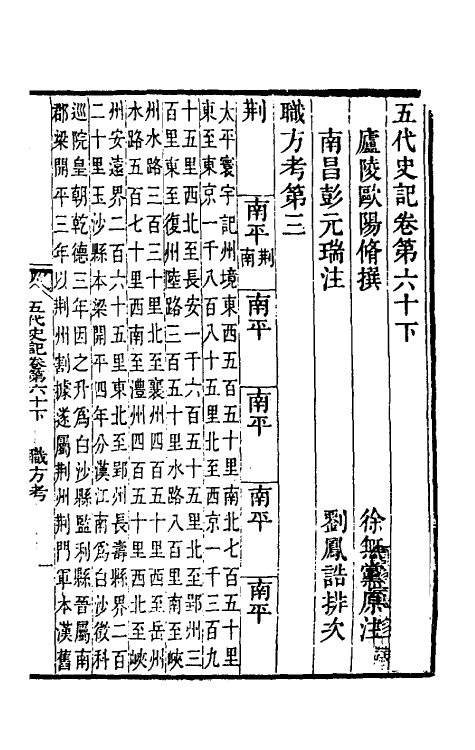 五代史記卷第六十下
廬陵歐陽脩撰 徐無黨原注
南昌彭元瑞注 劉鳳誥排次
職方考第三
荆 南平荆南 南平 南平 南平 南平
太平寰宇記州境東西五百五十里南北七百五十里
東至東京一千八百八十五里北至西京一千三百九
十五里西北至長安一千六百五十五里北至鄂州三
百里東至復州陸路三百五十里水路八百里南至峽
州水路三百三十里北至襄州四百五十里西至岳州
水路五百七十里西南至澧州四百五十里西北至峽
州安遠界二百六十五里東北至郢州長壽縣界二百
二十里玉沙縣本梁開平四年分漢江南爲白沙徴科
巡院皇朝乾德三年因之升爲白沙縣監利縣晉屬南
郡梁開平三年以荆州割據遂屬荆州荆門軍本漢舊
五代史記卷第六十下 職方考 一